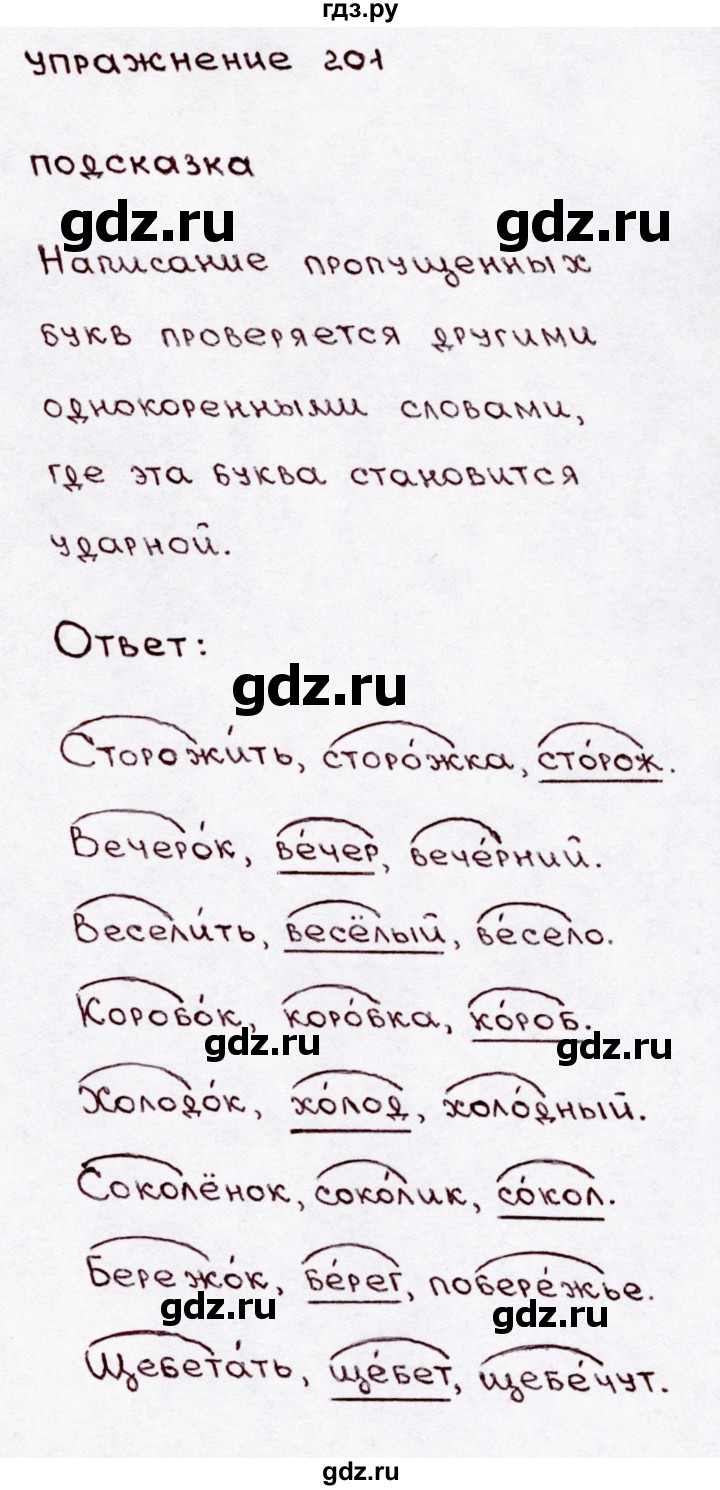 гдз.ру
упражнение 201
подсказка
gdz.ru gdz.ru
Написание пропущенных
букв проверяется другими
однокоренными словами,
где эта буква становится
ударной.
Ответ:
gdz.ru
Сторожи́ть, сторо́жка, сто́рож.
Вечеро́к, ве́чер, вече́рний.
Весели́ть, весёлый, ве́село.
Коробо́к, коро́бка, ко́роб.
gdz.ru gdz.ru
Холодо́к, хо́лод, холо́дный.
Соколёнок, соко́лик, со́кол.
Бережо́к, бе́рег, побере́жье.
gdz.ru gdz.ru
Щебета́ть, ще́бет, щебе́чут.
gdz.ru